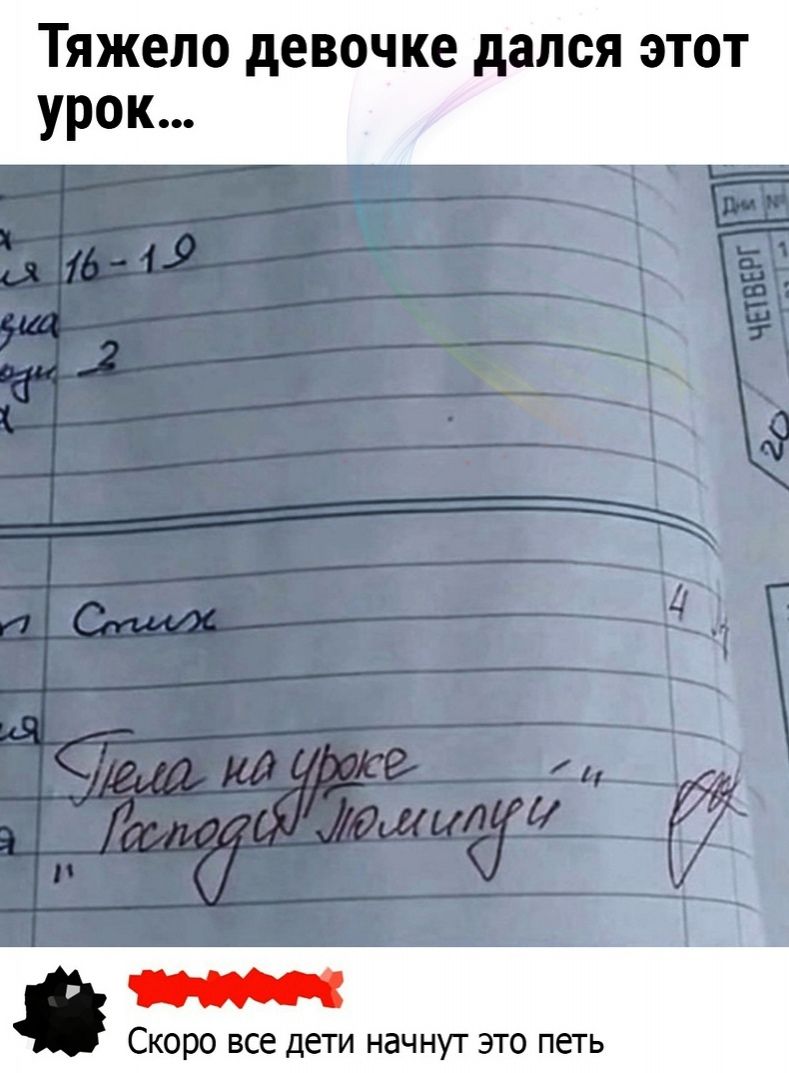 Тяжело девочке дался этот
урок...
Дни №
ЧЕТВЕРГ
ия 16-19
2
20
Стих
4
ия
Пела на уроке
"Господи Помилуй"
Скоро все дети начнут это петь